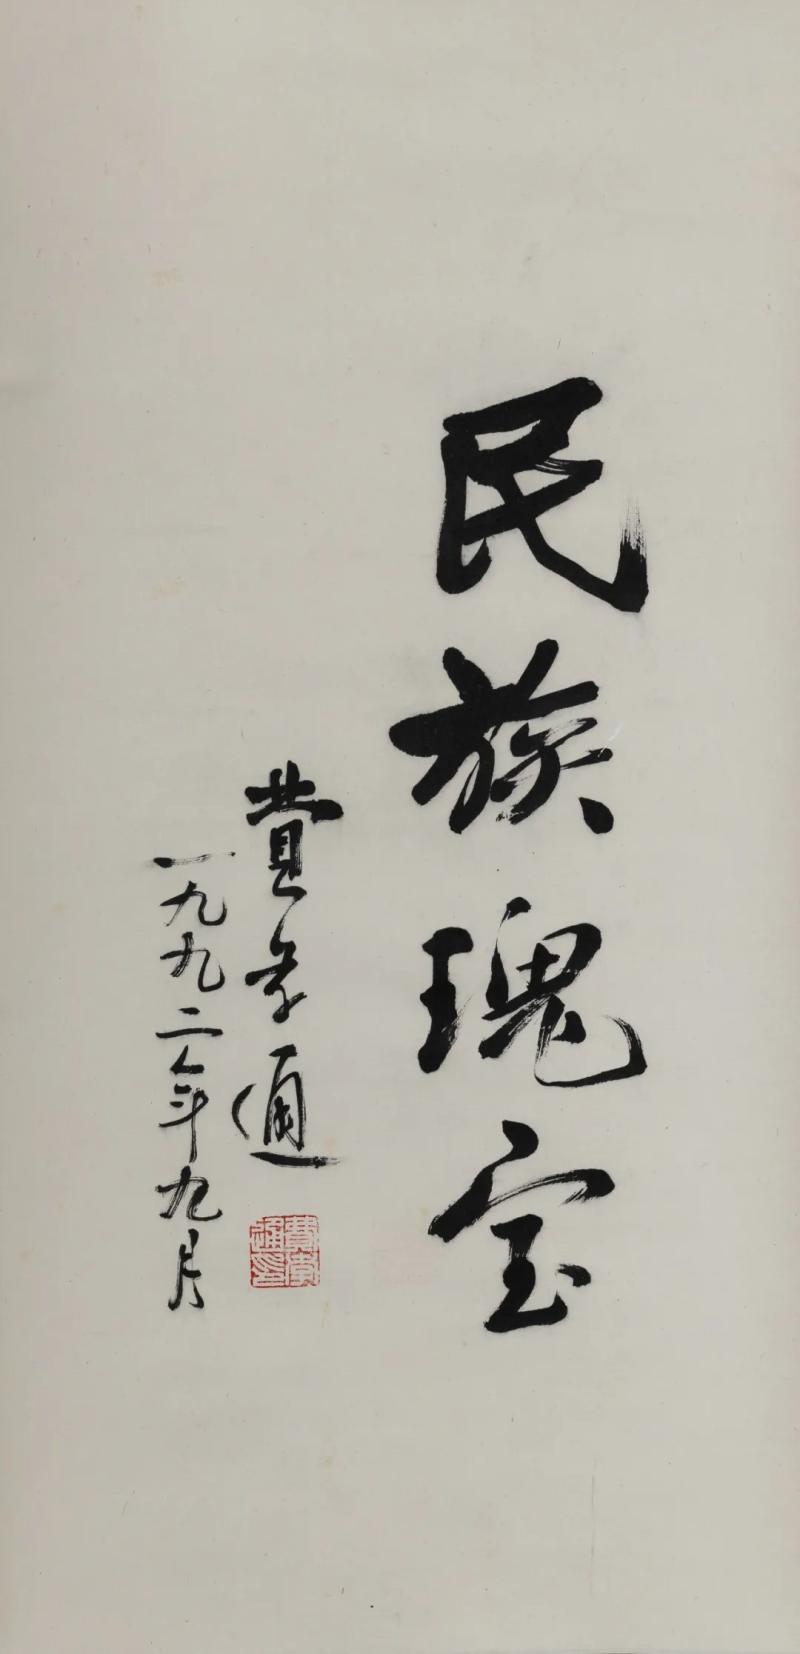 民族瑰宝
费孝通
一九九二年九月
費孝通印